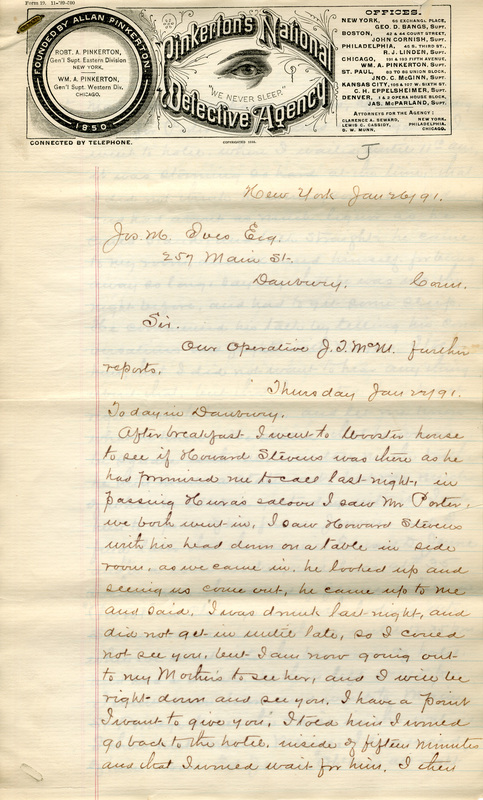 Form 19. 11-'89-500
FOUNDED BY ALLAN PINKERTON.
ROBT. A. PINKERTON,
Gen'l Supt. Eastern Division
NEW YORK.
WM. A. PINKERTON,
Gen'l Supt. Western Div.
CHICAGO.
1850
Pinkerton's National
"WE NEVER SLEEP."
Detective Agency
OFFICES.
NEW YORK, 66 EXCHANGE PLACE,
GEO. D. BANGS, SUPT.
BOSTON, 42 & 44 COURT STREET,
JOHN CORNISH, SUPT.
PHILADELPHIA, 45 S. THIRD ST.,
R. J. LINDEN, SUPT.
CHICAGO, 191 & 193 FIFTH AVENUE,
WM. A. PINKERTON, SUPT.
ST. PAUL, 85 TO 90 UNION BLOCK,
JNO. C. McGINN, SUPT.
KANSAS CITY, 105 & 107 W. SIXTH ST.
C. H. EPPELSHEIMER, SUPT.
DENVER, 1 & 2 OPERA HOUSE BLOCK,
JAS. McPARLAND, SUPT.
ATTORNEYS FOR THE AGENCY:
CLARENCE A. SEWARD, NEW YORK.
LEWIS C. CASSIDY, PHILADELPHIA.
S. W. MUNN, CHICAGO.
CONNECTED BY TELEPHONE.
J
New York Jan 26/91.
Jos. M. Ives Esq
257 Main St.
Danbury. Conn.
Sir.
Our Operative J.T.McM. further
reports.
Thursday Jan 22/91.
Today in Danbury.
After breakfast I went to Wooster house
to see if Howard Stevens was there as he
had promised me to call last night, in
passing saloon I saw Mr Porter,
we both went in, I saw Howard Stevens
with his head down on a table in side
room, as we came in, he looked up and
seeing us come out, he came up to me
and said. "I was drunk last night, and
did not get in until late, so I could
not see you, but I am now going out
to my Mothers to see her, and I will be
right down and see you. I have a point
I want to give you". I told him I would
go back to the hotel, inside of fifteen minutes
and that I would wait for him. I then